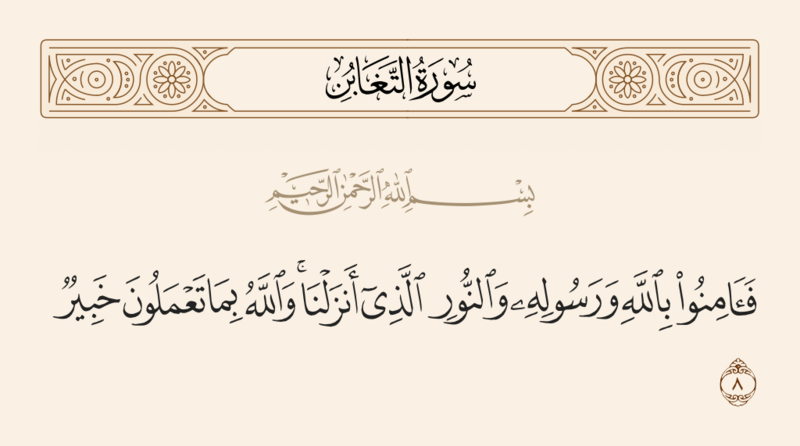 سُورَةُ التَّغَابُنِ
بِسْمِ ٱللَّهِ ٱلرَّحْمَٰنِ ٱلرَّحِيمِ
فَـَٔامِنُوا۟ بِٱللَّهِ وَرَسُولِهِۦ وَٱلنُّورِ ٱلَّذِىٓ أَنزَلْنَا ۚ وَٱللَّهُ بِمَا تَعْمَلُونَ خَبِيرٌ
٨